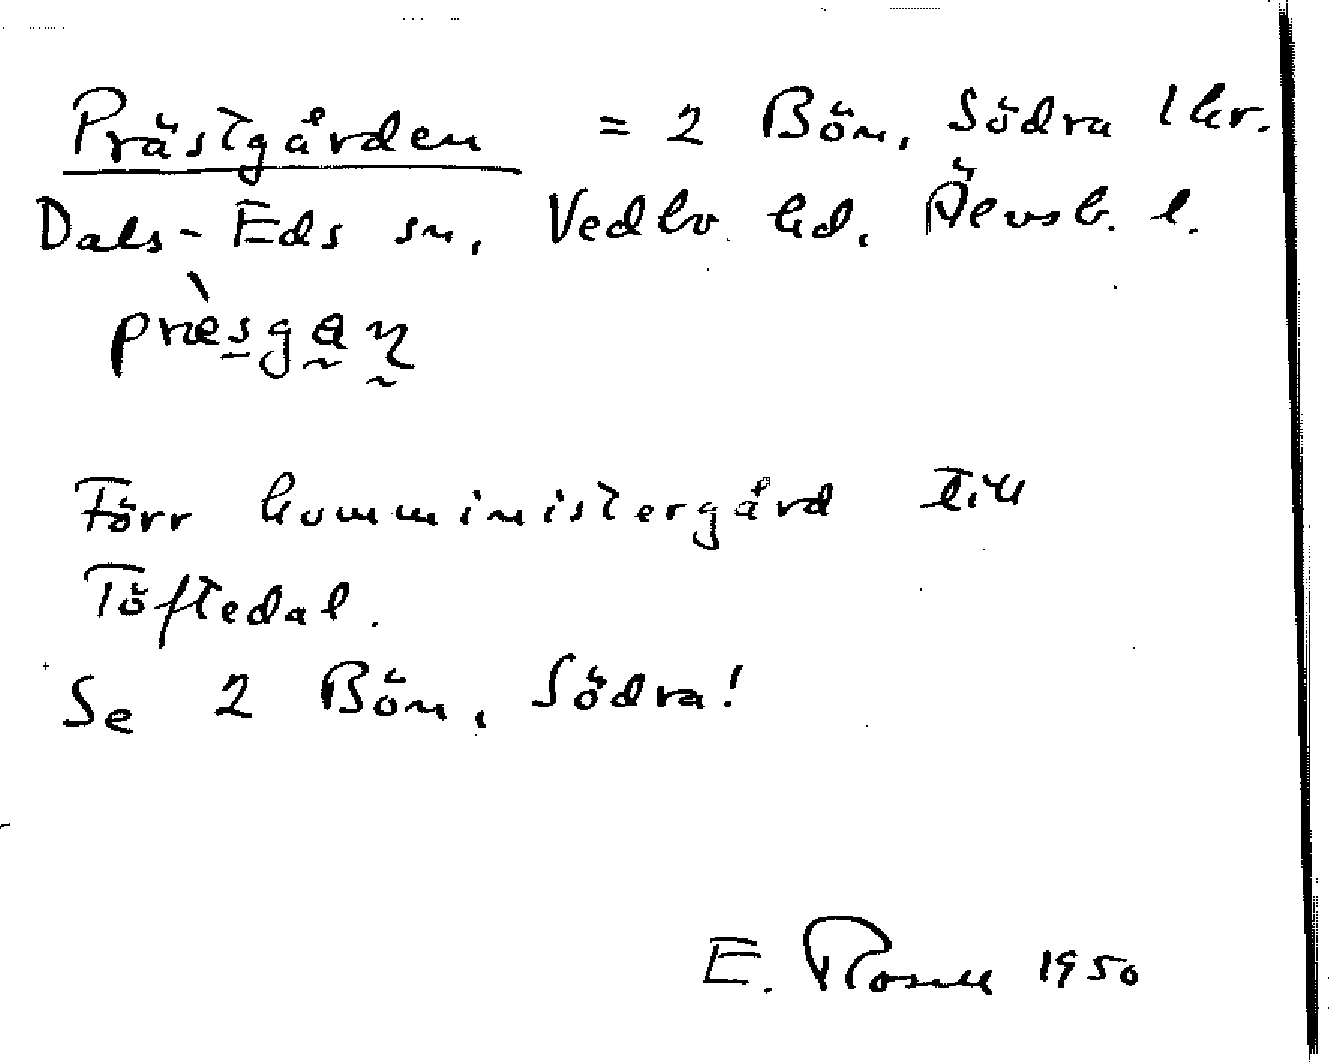 Prästgården = 2 Bön, Södra 1 kr.
Dals-Eds sn, Vedbo hd, Älvsb. l.
Förr komministergård till
Töftedal.
Se 2 Bön, Södra!
E. Rosell 1950